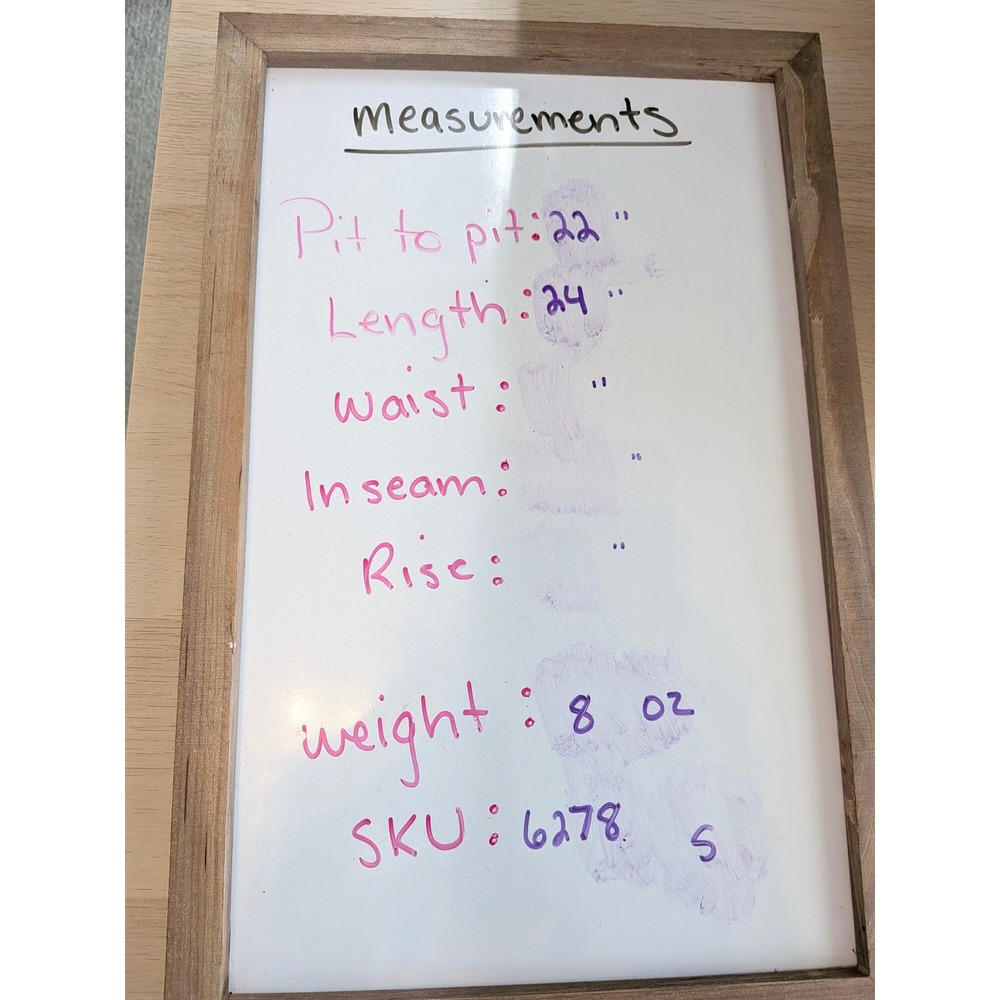 measurements
Pit to pit: 22 "
Length: 24 "
Waist: "
Inseam: "
Rise: "
weight: 8 oz
SKU: 6278 S